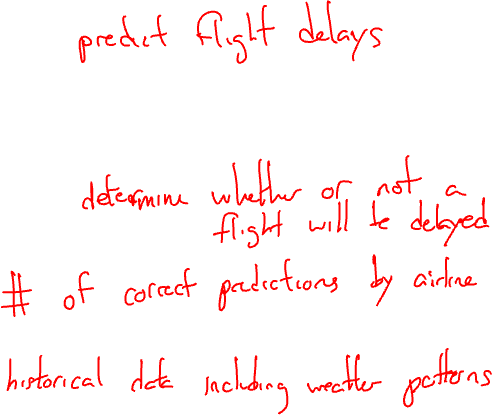 predict flight delays
determine whether or not a
flight will be delayed
# of correct predictions by airline
historical data including weather patterns